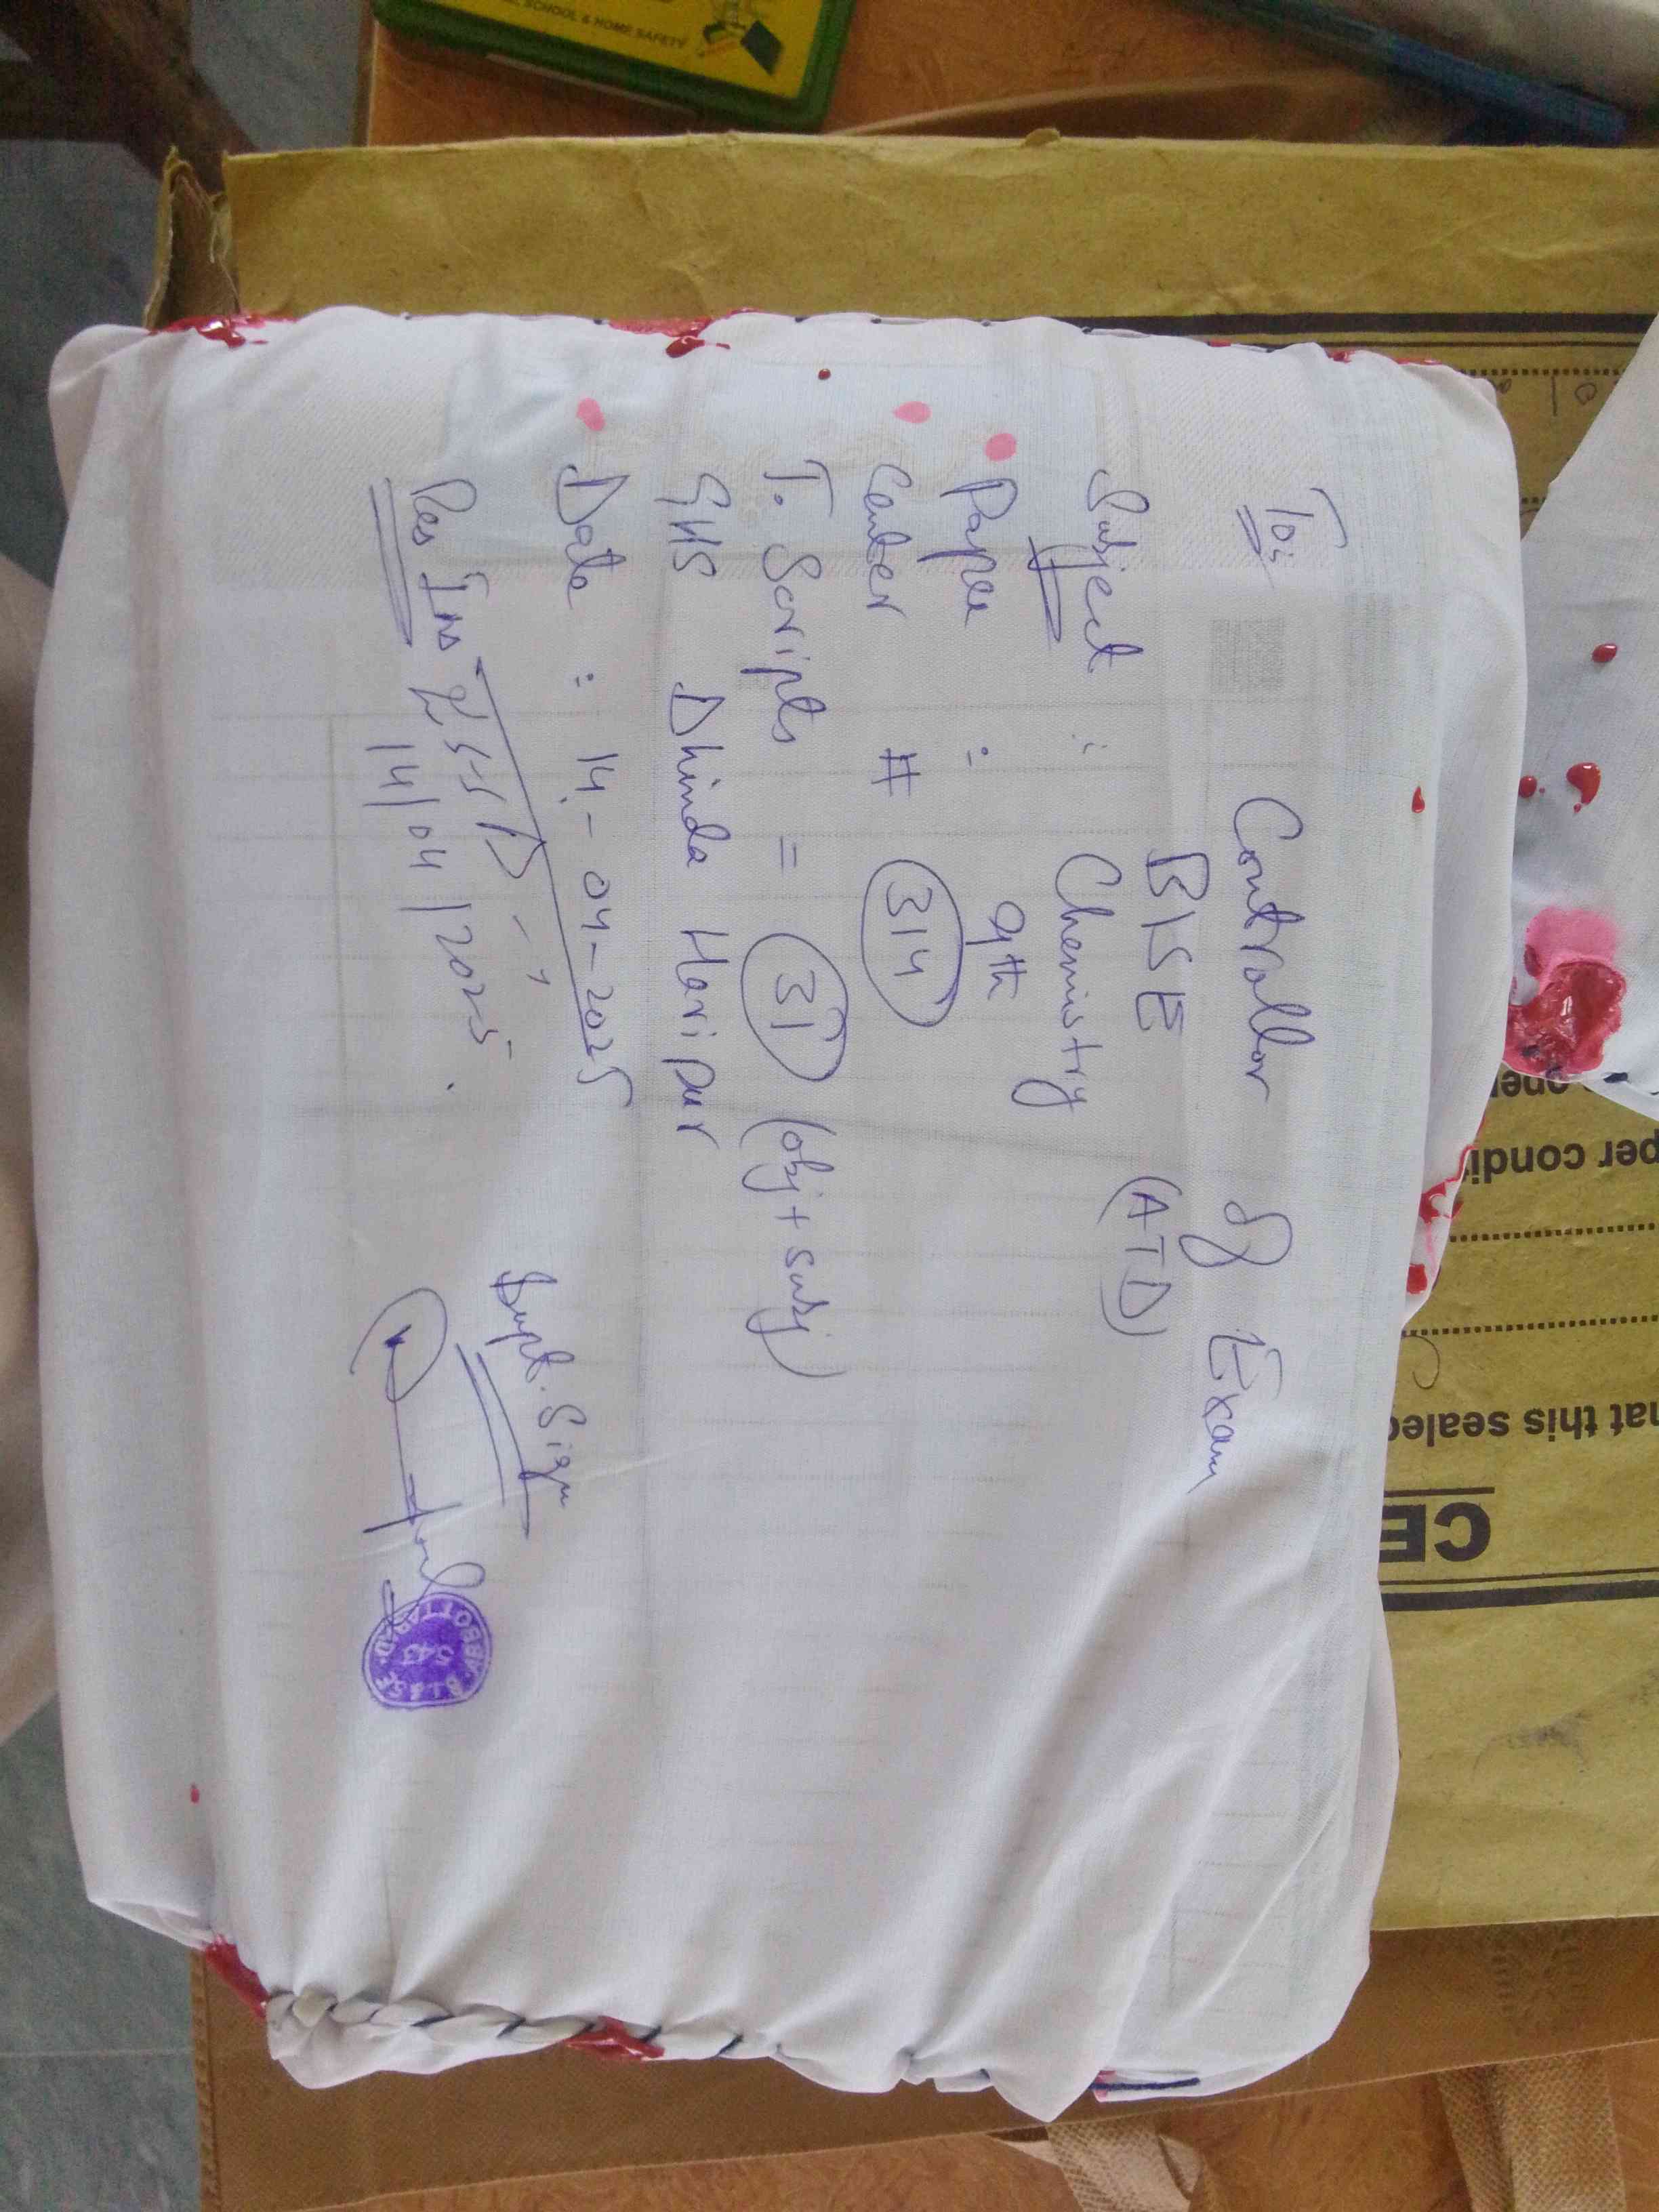 To:
Controllor of Exam
BISE (ATD)
Subject : Chemistry
Paper : 9th
Center # 314
T. Scripts = 31 (obj + subj)
GHS Dhinda Haripur
Date : 14-04-2025
Supt. Sign
Res Ins
14/04/2025
B.I.S.E
543
ABBOTTABAD
SCHOOL & HOME SAFETY
CE
hat this sealed
per condi
open